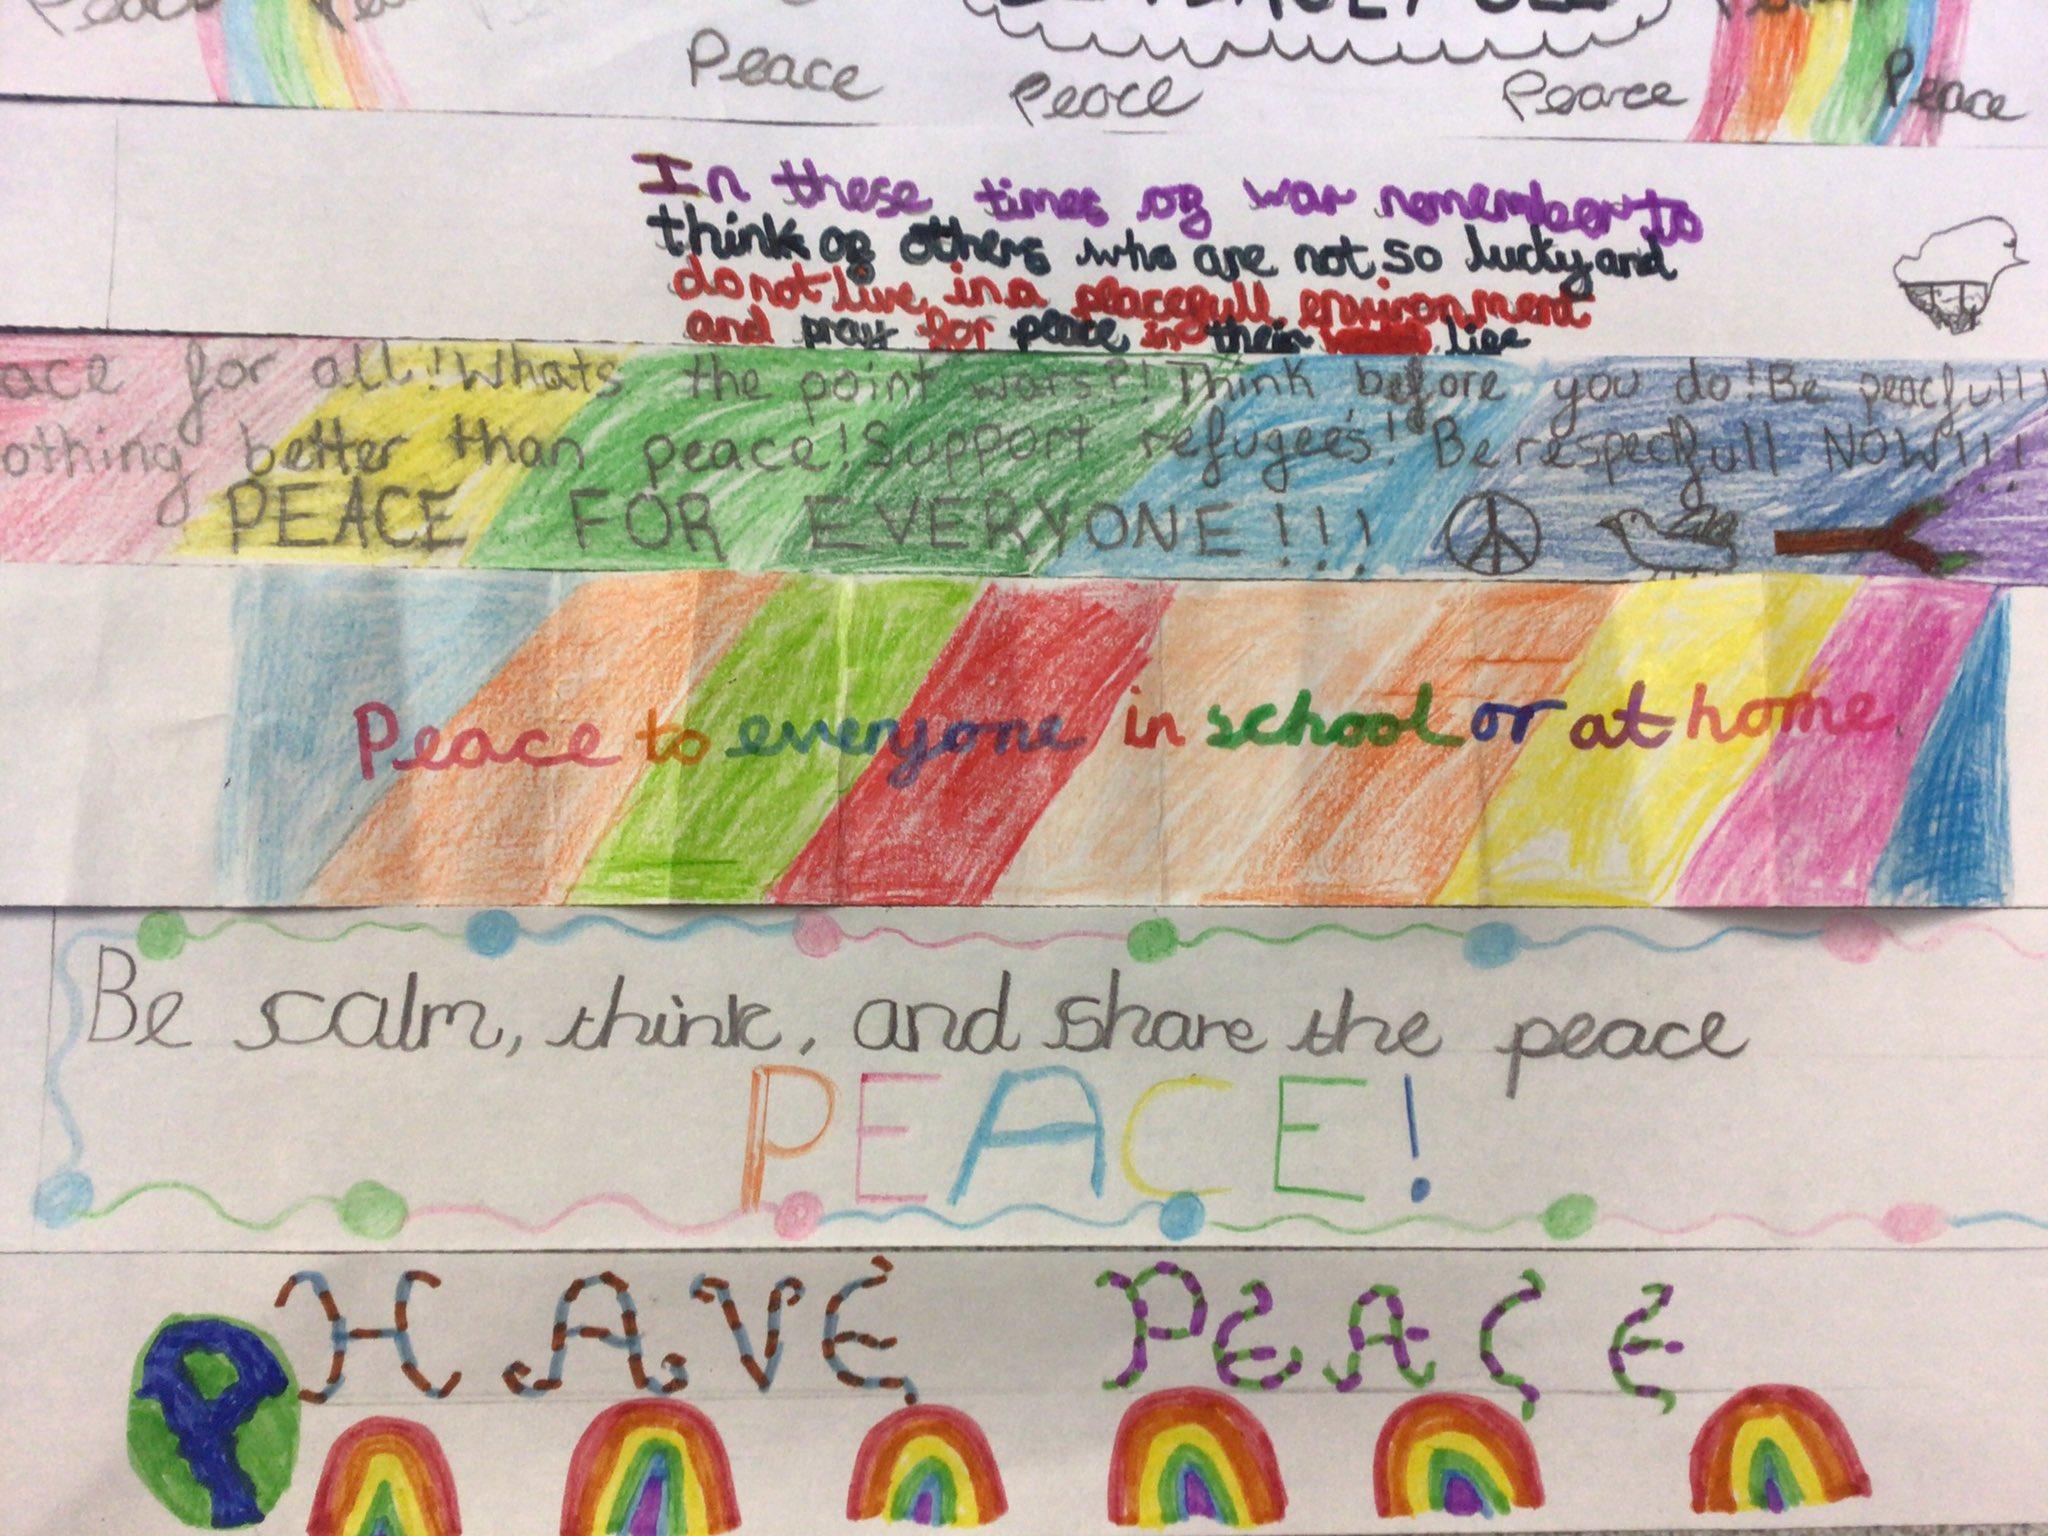 Peace
Peace Peace Peace Peace
In these times of war remember to
think of others who are not so lucky and
do not live in a peacefull environment
and pray for peace in their life
ace for all! Whats the point wars?! Think before you do! Be peacfull!
othing better than peace! Support refugee's! Be respectfull NOW!!!
PEACE FOR EVERYONE!!!
Peace to everyone in school or at home
Be calm, think, and share the peace
PEACE!
HAVE PEACE